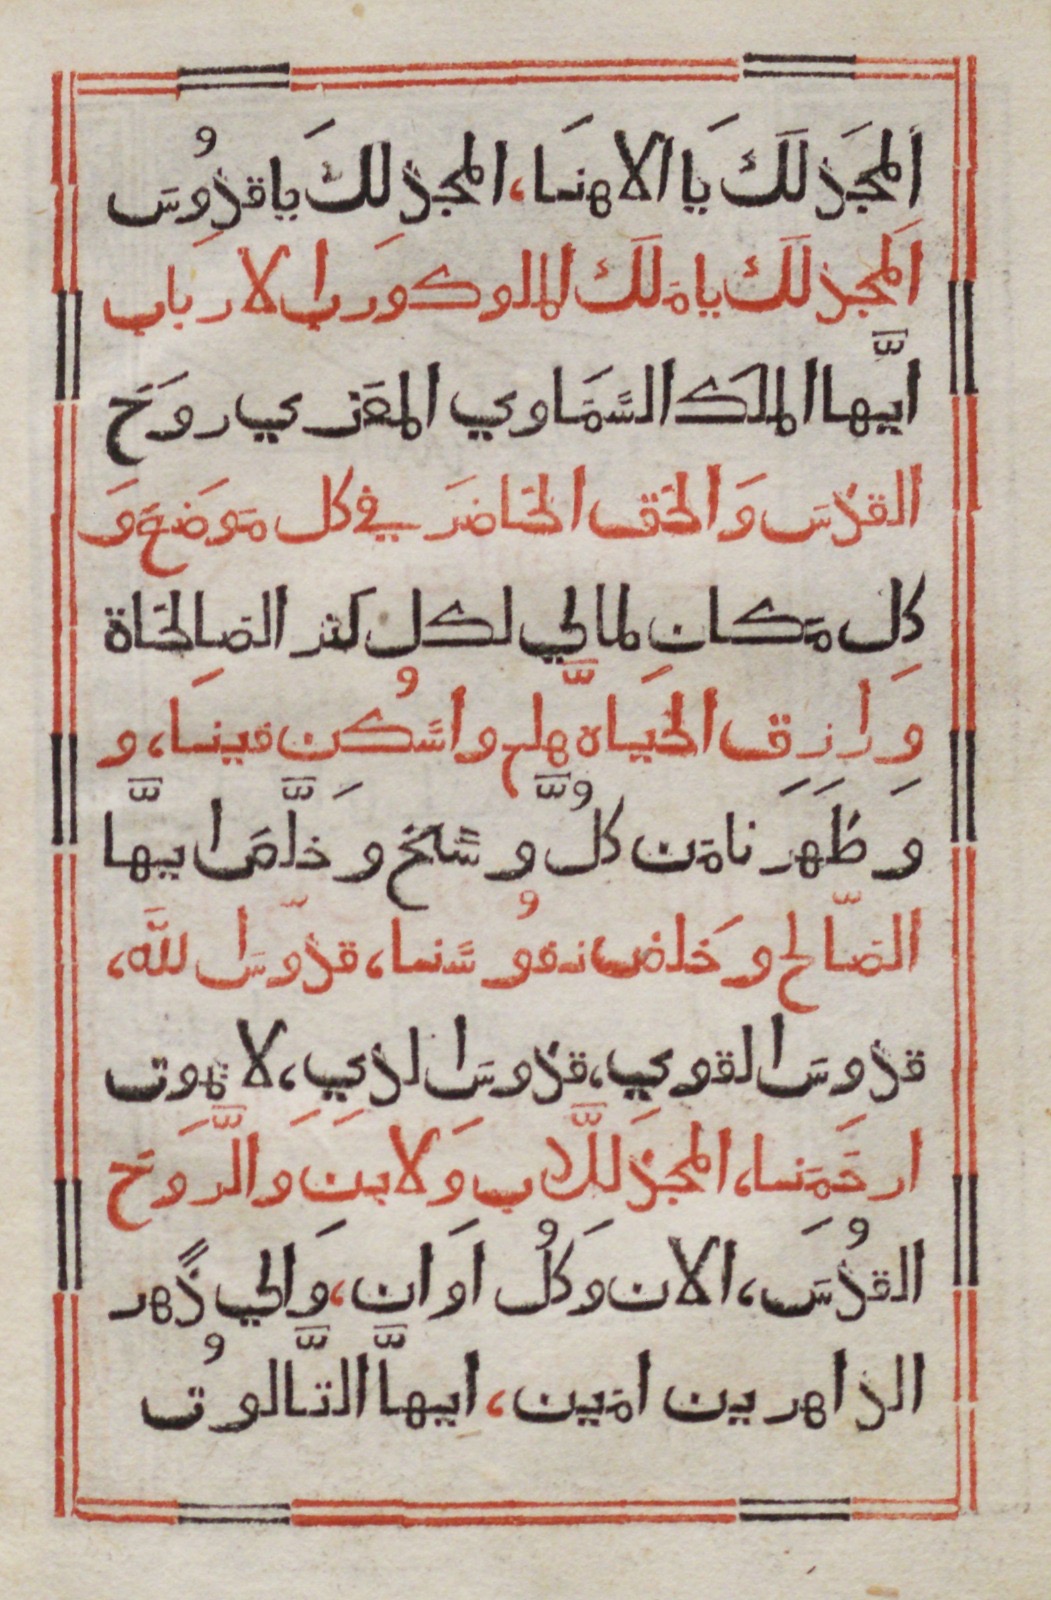 المجَد لَكَ يا الاهنَا، المجد لكَ ياقدُوسَ
اَلمجد لَكَ يامَلَكَ الملوك وَرب الاَرباب
ايّها الملَك السَّمَاوي المعَزي روَحَ
القدسَ وَالحَق الحَاضَرَ في كل مَوَضعَ وَ
كل مَكان لمالي لكل كنر الصَالحَاة
وَارزق الحيَاه هلم واسَّكُن فينَا، و
وَطَهَرَنا مَن كلُّ وسَّخ وَخلَّصَ ايهَّا
الصَّالح وَخلص نفوُسَّنا، قدّوسَ اللَّه،
قدوسَ القوي، قدوسَ الذي، لا يموت
ارحَمَنا، المجدَ للَّاب وَلابنَ وَالرَّوَحَ
القدُسَ، الانَ وَكلُ اوَان، وَالي دًهر
الداهرين امَين، ايهاَّ التَّالوُت